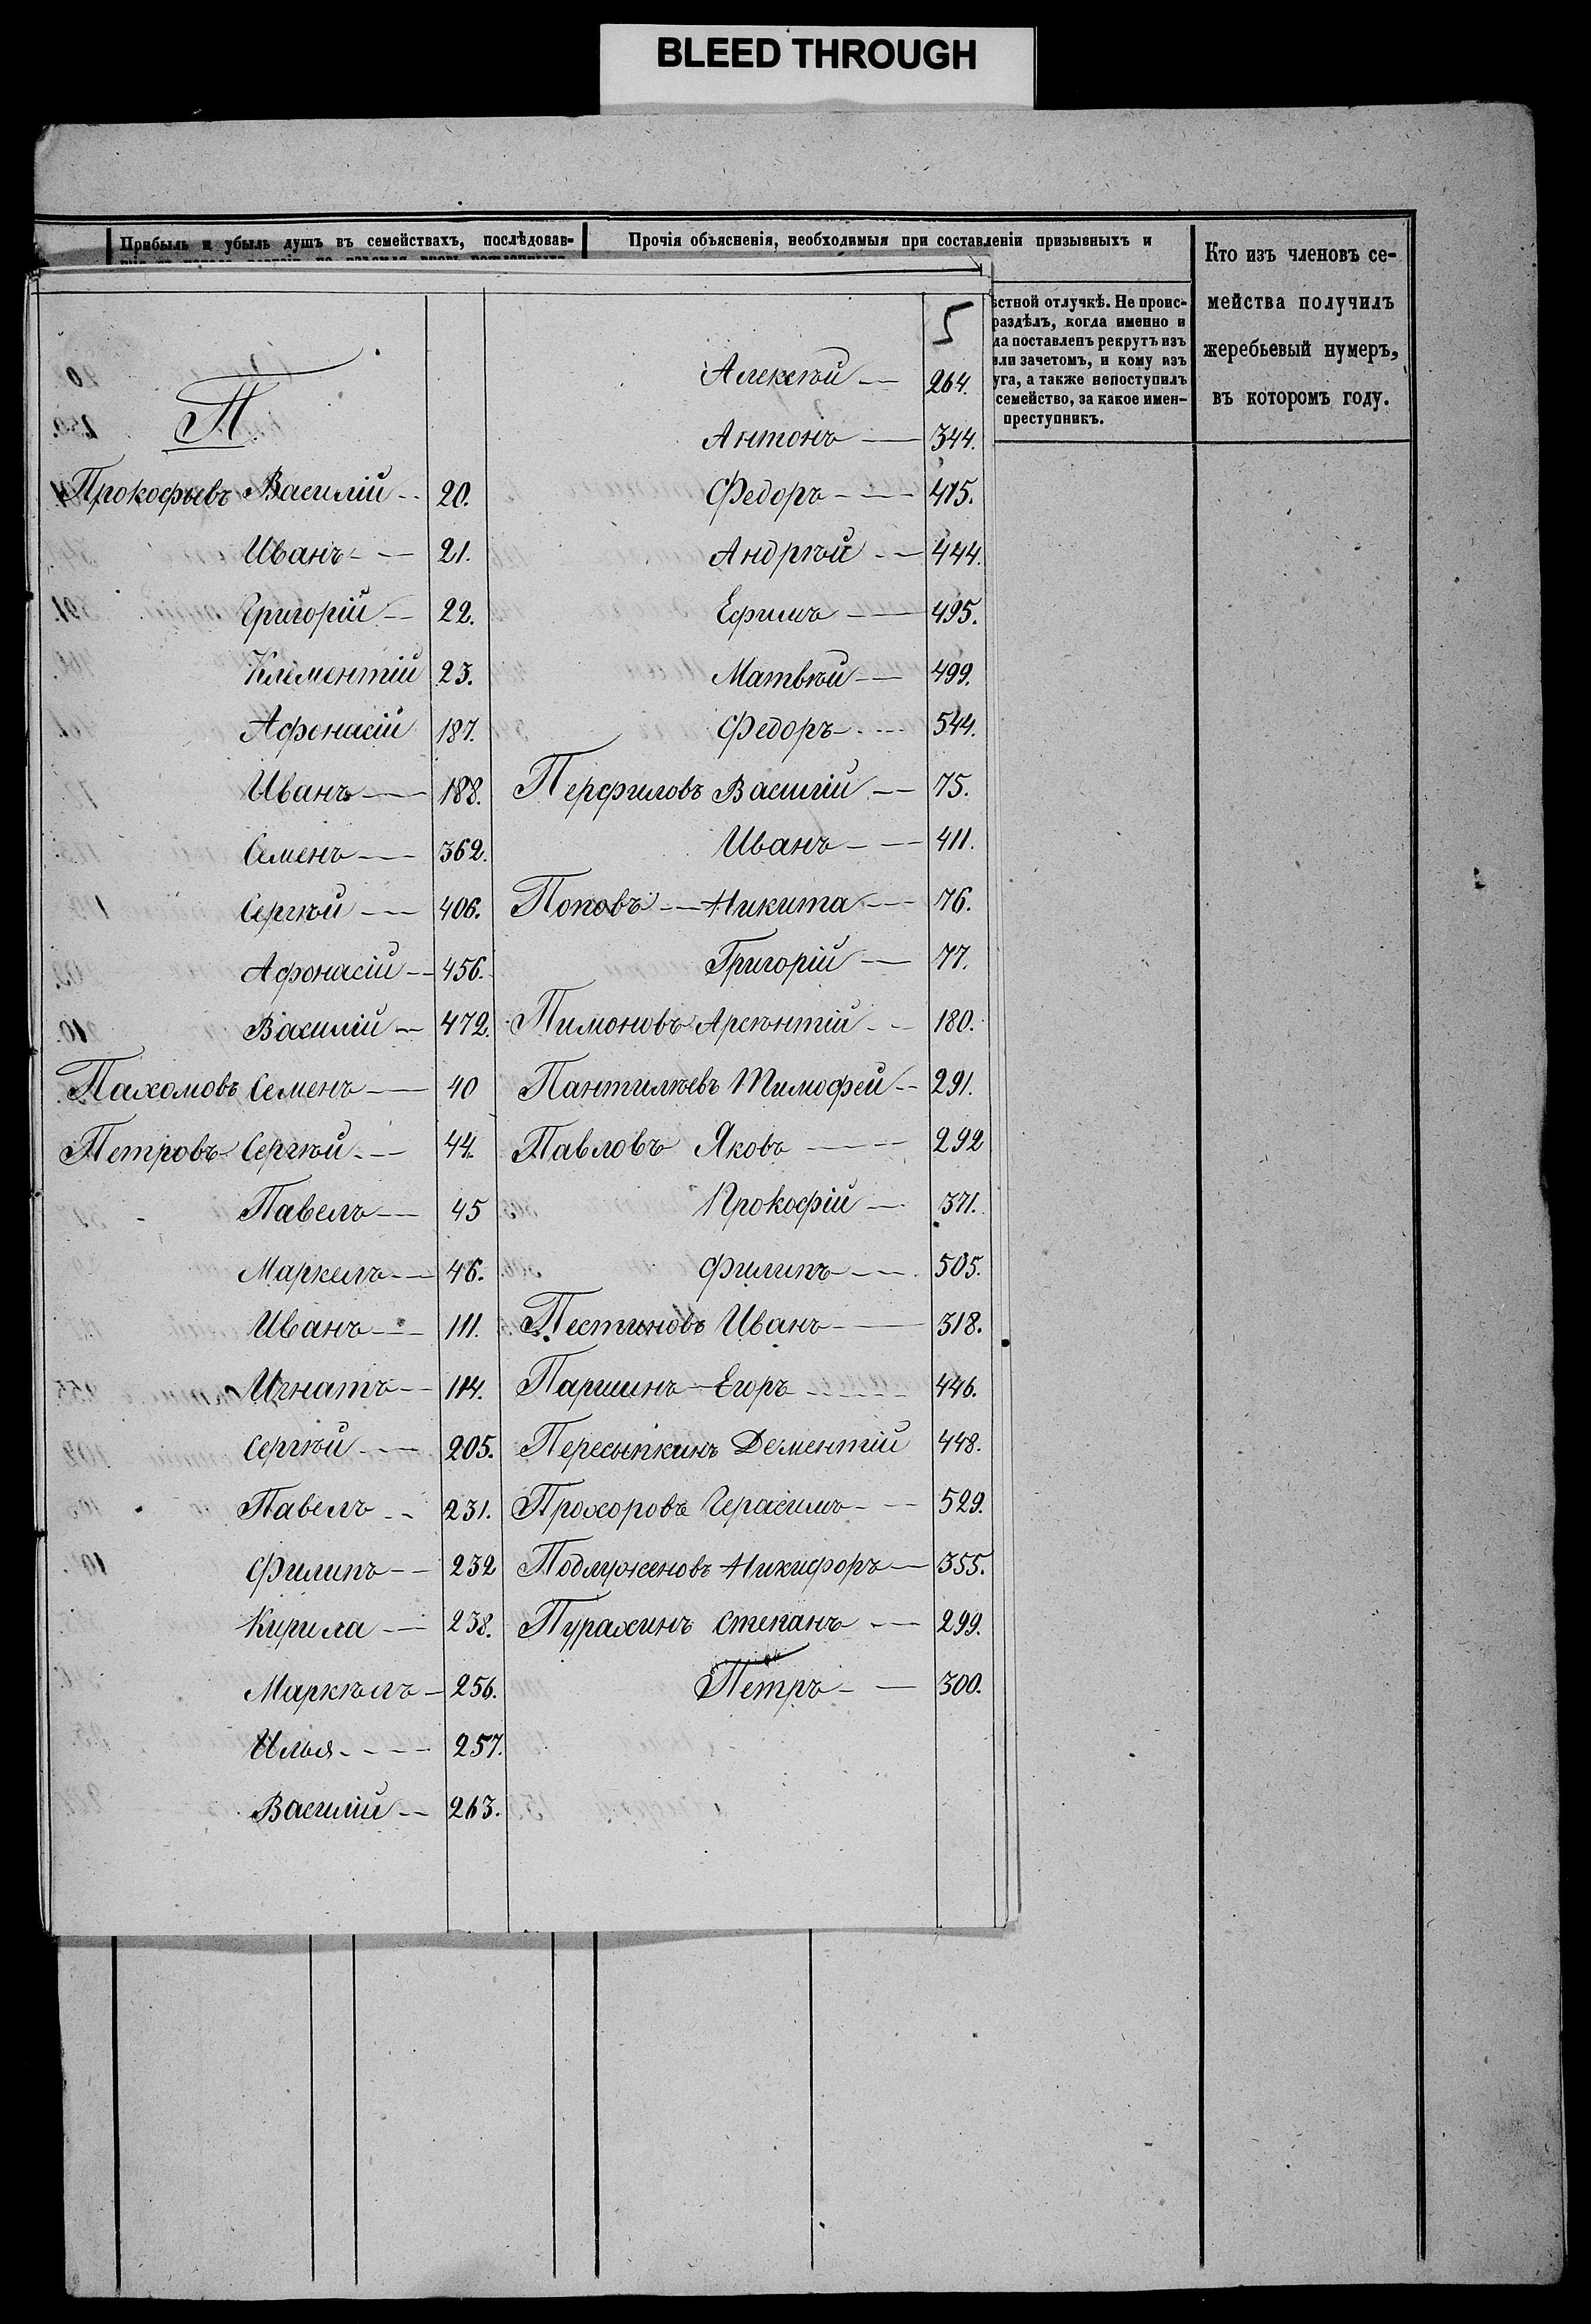 BLEED THROUGH
Прибыль и убыль душъ въ семействахъ, послѣдовав-
Прочія объясненія, необходимыя при составленіи призывныхъ и
ѣстной отлучкѣ. Не проис-
раздѣлъ, когда именно и
да поставленъ рекрутъ изъ
или зачетомъ, и кому изъ
уга, а также непоступилъ
семейство, за какое имен-
преступникъ.
Кто изъ членовъ се-
мейства получилъ
жеребьевый нумеръ,
въ которомъ году.
П
Прокофьевъ Василій 20.
Иванъ 21.
Григорій 22.
Клементій 23.
Афонасій 187.
Иванъ 188.
Семенъ 362.
Сергѣй 406.
Афонасій 456.
Василій 472.
Пахомовъ Семенъ 40
Петровъ Сергѣй 44.
Павелъ 45
Маркелъ 46.
Иванъ 111.
Игнатъ 114.
Сергѣй 205.
Павелъ 231.
Филипъ 232
Кирила 238.
Маркѣлъ 256.
Илья 257.
Василій 263.
5
Алексѣй 264.
Антонъ 344.
Федоръ 415.
Андрѣй 444.
Ефимъ 495.
Матвѣй 499.
Федоръ 544.
Перфиловъ Василій 75.
Иванъ 411.
Поповъ Никита 76.
Григорій 77.
Пимоновъ Арсѣнтій 180.
Пантилѣевъ Тимофей 291.
Павловъ Яковъ 292
Прокофій 371.
Филипъ 505.
Пестиновъ Иванъ 318.
Паршинъ Егоръ 446.
Пересыпкинъ Дементій 448.
Прохоровъ Герасимъ 529.
Подмуженовъ Никифоръ 355.
Пурахинъ Степанъ 299.
Петръ 300.